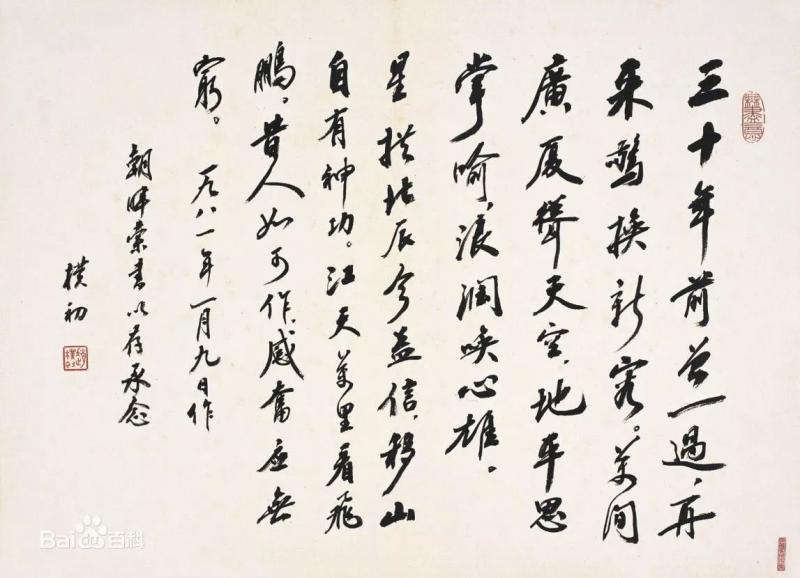 三十年前曾一過，再
来驚換新容。萬间
廣厦聳天空，地平思
掌喻，浪阔唤心雄。
星拱北辰今益信，移山
自有神功。江天萬里看飛
鵬。昔人如可作，感奮应無
窮。一九八一年一月九日作
朝晖索書以存永念
樸初
Bai百科